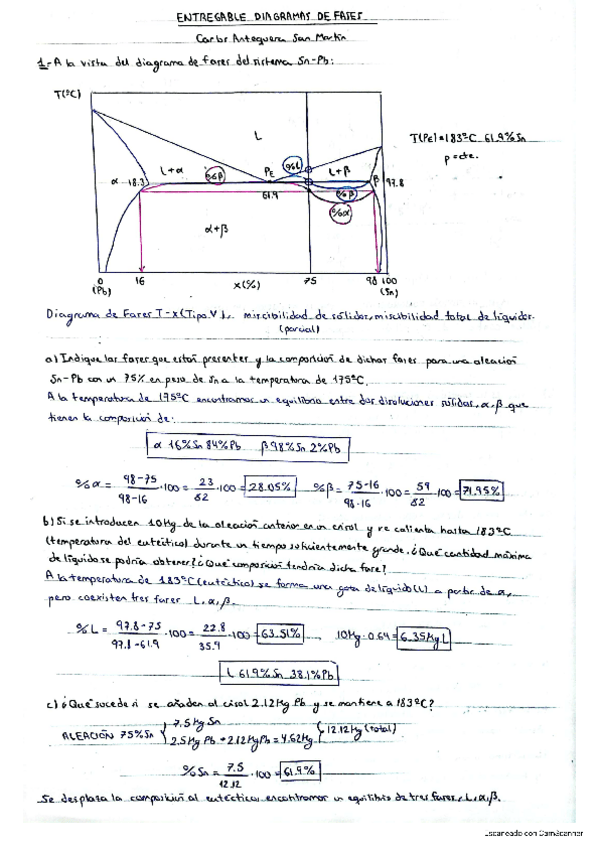 ENTREGABLE DIAGRAMAS DE FASES
Carlos Antequera San Martín
1.- A la vista del diagrama de fases del sistema Sn-Pb:
T(ºC)
L
T(PE)=183ºC 61.9%Sn
p=cte.
L+α
%β
PE
%L
L+β
α
18.3
β
97.8
61.9
%β
%α
α+β
0
16
x(%)
75
98
100
(Pb)
(Sn)
Diagrama de Fases T-x (Tipo V), miscibilidad de sólidos, miscibilidad total de líquidos.
(parcial)
a) Indique las fases que están presentes y la composición de dichas fases para una aleación
Sn-Pb con un 75% en peso de Sn a la temperatura de 175ºC.
A la temperatura de 175ºC encontramos un equilibrio entre dos disoluciones sólidas, α, β que
tienen la composición de:
α 16%Sn 84%Pb β 98%Sn 2%Pb
%α = 98-75 / 98-16 ·100 = 23 / 82 ·100 = 28.05% %β = 75-16 / 98-16 ·100 = 59 / 82 ·100 = 71.95%
b) Si se introducen 10Kg de la aleación anterior en un crisol y se calienta hasta 183ºC
(temperatura del eutéctico) durante un tiempo suficientemente grande. ¿Qué cantidad máxima
de líquido se podría obtener? ¿Qué composición tendría dicha fase?
A la temperatura de 183ºC (eutéctico) se forma una gota de líquido (L) a partir de α,
pero coexisten tres fases L, α, β.
%L = 97.8-75 / 97.8-61.9 ·100 = 22.8 / 35.9 ·100 = 63.51% 10Kg·0.64 = 6.35Kg L
L 61.9%Sn 38.1%Pb
c) ¿Qué sucede si se añaden al crisol 2.12Kg Pb y se mantiene a 183ºC?
ALEACIÓN 75%Sn
7.5Kg Sn
2.5Kg Pb + 2.12Kg Pb = 4.62Kg
12.12Kg (total)
%Sn = 7.5 / 12.12 ·100 = 61.9%
Se desplaza la composición al eutéctico, encontramos un equilibrio de tres fases, L, α, β.
Escaneado con CamScanner